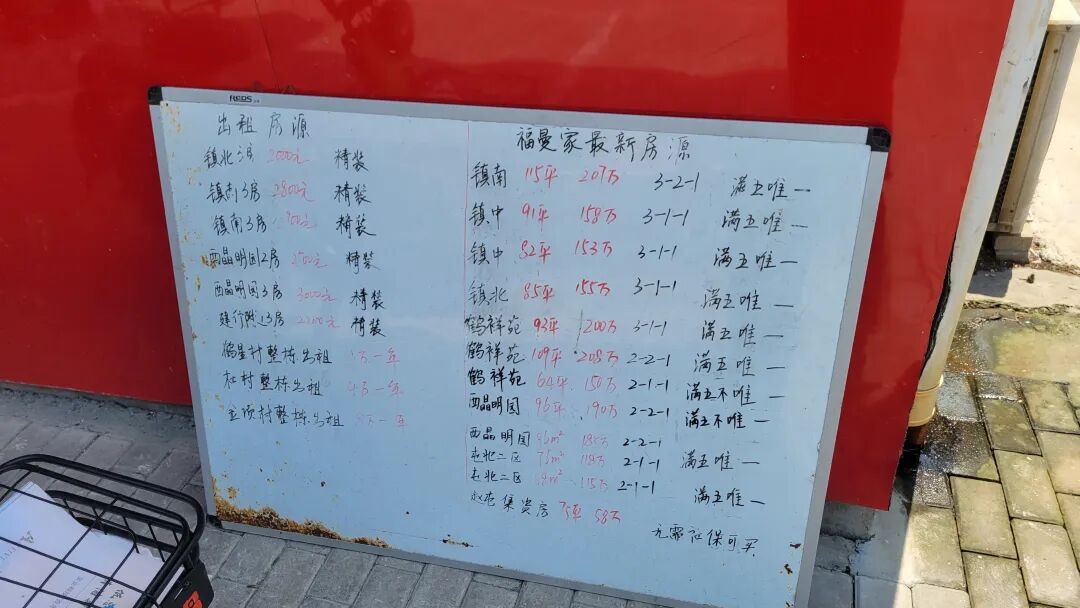 REDS
出租房源
镇北3房 2000元 精装
镇南3房 2800元 精装
镇南3房 精装
西晶明园2房 精装
西晶明园3房 3000元 精装
建行附近3房 2200元 精装
鹤星村整栋出租 万一年
杜村整栋出租 万一年
整栋出租 万一年
福曼家最新房源
镇南 115平 207万 3-2-1 满五唯一
镇中 91平 158万 3-1-1 满五唯一
镇中 82平 153万 3-1-1 满五唯一
镇北 85平 155万 3-1-1 满五唯一
鹤祥苑 93平 200万 3-1-1 满五唯一
鹤祥苑 109平 208万 2-2-1 满五唯一
鹤祥苑 64平 150万 2-1-1 满五不唯一
西晶明园 96平 190万 2-2-1 满五不唯一
西晶明园 96m² 185万 2-2-1
北二区 75m² 118万 2-1-1 满五唯一
北二区 69m² 115万 2-1-1 满五唯一
集资房 75平 58万 无需社保可买